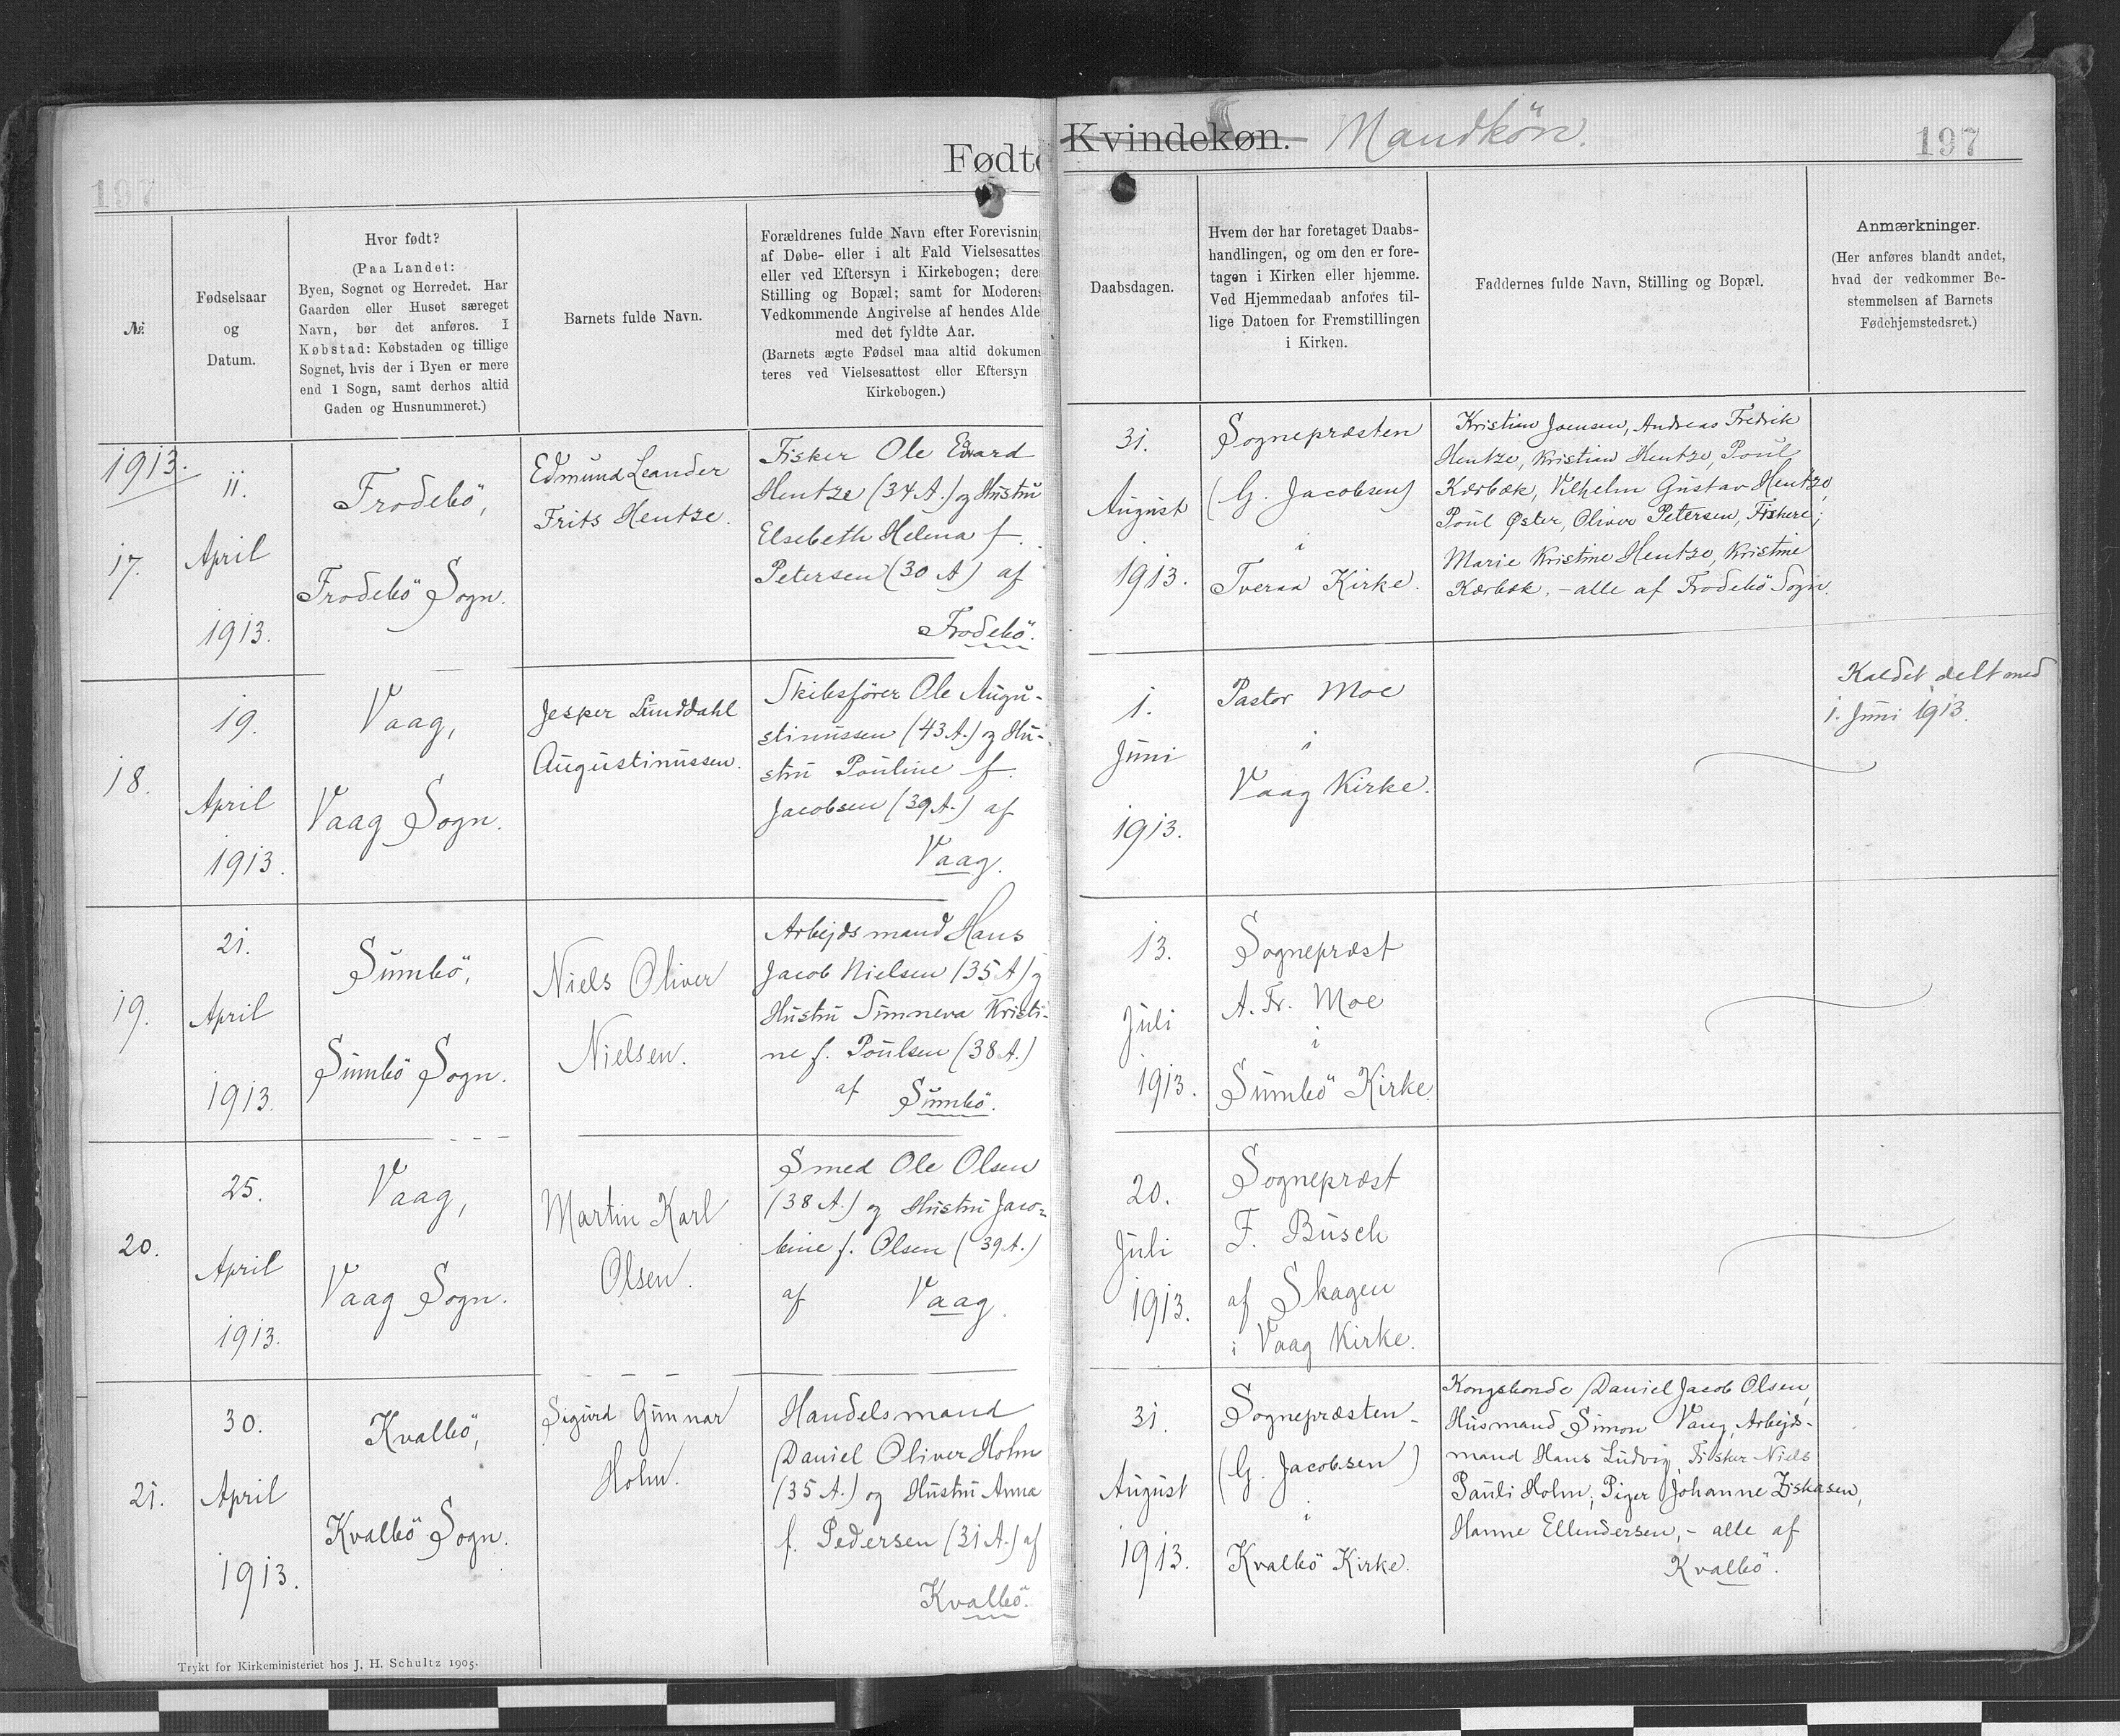 197
Fødte
Kvindekøn. Mandkön.
197
№
Fødselsaar
og
Datum.
Hvor født?
(Paa Landet:
Byen, Sognet og Herredet. Har
Gaarden eller Huset særeget
Navn, bør det anføres. I
Købstad: Købstaden og tillige
Sognet, hvis der i Byen er mere
end 1 Sogn, samt derhos altid
Gaden og Husnummeret.)
Barnets fulde Navn.
Forældrenes fulde Navn efter Forevisning
af Døbe- eller i alt Fald Vielsesattest
eller ved Eftersyn i Kirkebogen; deres
Stilling og Bopæl; samt for Moderens
Vedkommende Angivelse af hendes Alder
med det fyldte Aar.
(Barnets ægte Fødsel maa altid dokumen
teres ved Vielsesattest eller Eftersyn
Kirkebogen.)
Daabsdagen.
Hvem der har foretaget Daabs-
handlingen, og om den er fore-
tagen i Kirken eller hjemme.
Ved Hjemmedaab anføres til-
lige Datoen for Fremstillingen
i Kirken.
Faddernes fulde Navn, Stilling og Bopæl.
Anmærkninger.
(Her anføres blandt andet,
hvad der vedkommer Be-
stemmelsen af Barnets
Fødehjemstedsret.)
1913.
17.
11.
April
1913.
Frodebö,
Frodebö Sogn.
Edmund Leander
Frits Hentze.
Fisker Ole Edvard
Hentze (34 A.) og Hustru
Elsebeth Helena f.
Petersen (30 A) af
Frodebö.
31.
August
1913.
Sognepræsten
(G. Jacobsen)
i
Tveraa Kirke.
Kristian Joensen, Andreas Fredrik
Hentze, Kristian Hentze, Poul
Kærbæk, Vilhelm Gustav Hentze,
Poul Øster, Oliver Petersen, Fiskere;
Marie Kristine Hentze, Kristine
Kærbæk, - alle af Frodebö Sogn.
18.
19.
April
1913.
Vaag,
Vaag Sogn.
Jesper Lunddahl
Augustinussen.
Skibsförer Ole Augu-
stinussen (43 A.) og Hu-
stru Pouline f.
Jacobsen (39 A.) af
Vaag.
1.
Juni
1913.
Pastor Moe
i
Vaag Kirke.
Kaldet delt med
1. Juni 1913.
19.
21.
April
1913.
Sumbö,
Sumbö Sogn.
Niels Oliver
Nielsen.
Arbejdsmand Hans
Jacob Nielsen (35 A) og
Hustru Sunneva Kristi-
ne f. Poulsen (38 A.)
af Sumbö.
13.
Juli
1913.
Sognepræst
A. Fr. Moe
i
Sumbö Kirke
20.
25.
April
1913.
Vaag,
Vaag Sogn.
Martin Karl
Olsen.
Smed Ole Olsen
(38 A.) og Hustru Jaco-
bine f. Olsen (39 A.)
af Vaag.
20.
Juli
1913.
Sognepræst
F. Busch
af Skagen
i Vaag Kirke.
21.
30.
April
1913.
Kvalbö,
Kvalbö Sogn.
Sigurd Gunnar
Holm.
Handelsmand
Daniel Oliver Holm
(35 A.) og Hustru Anna
f. Pedersen (31 A.) af
Kvalbö.
31.
August
1913.
Sognepræsten
(G. Jacobsen)
i
Kvalbö Kirke.
Kongsbonde Daniel Jacob Olsen,
Husmand Simon Vang, Arbejds-
mand Hans Ludvig, Fisker Niels
Pauli Holm; Piger Johanne
Hanne Ellendersen, - alle af
Kvalbö.
Trykt for Kirkeministeriet hos J. H. Schultz 1905.